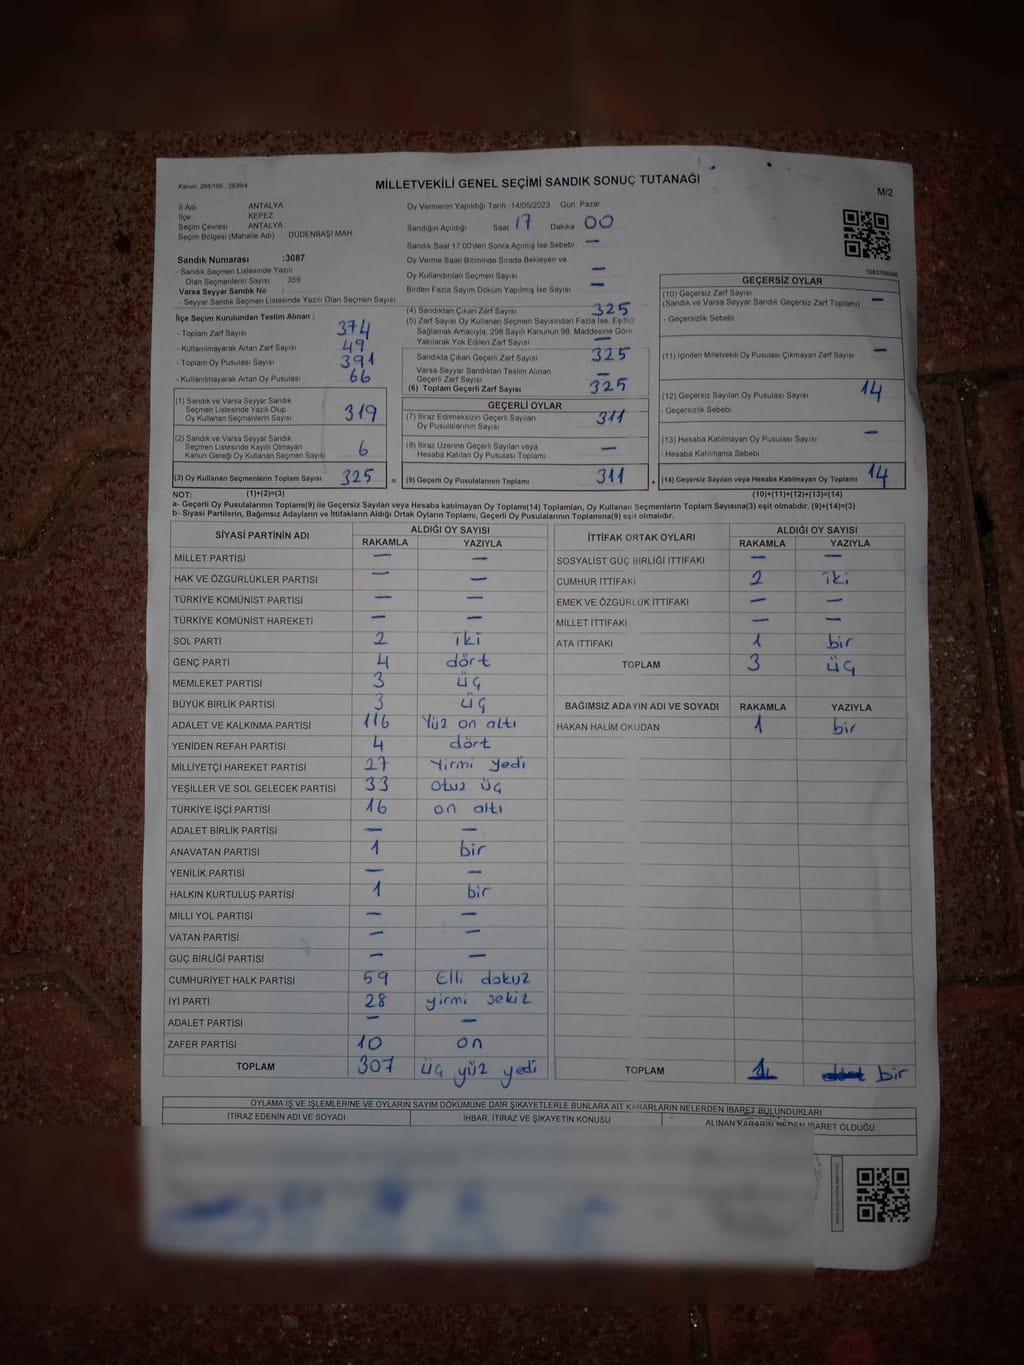 Kanun: 298/105 , 2839/4
MİLLETVEKİLİ GENEL SEÇİMİ SANDIK SONUÇ TUTANAĞI
M/2
İl Adı ANTALYA
İlçe KEPEZ
Seçim Çevresi ANTALYA
Seçim Bölgesi (Mahalle Adı) : DÜDENBAŞI MAH.
Sandık Numarası :3087
- Sandık Seçmen Listesinde Yazılı
Olan Seçmenlerin Sayısı : 359
Varsa Seyyar Sandık No :
- Seyyar Sandık Seçmen Listesinde Yazılı Olan Seçmen Sayısı
İlçe Seçim Kurulundan Teslim Alınan ;
- Toplam Zarf Sayısı 374
- Kullanılmayarak Artan Zarf Sayısı 49
- Toplam Oy Pusulası Sayısı 391
- Kullanılmayarak Artan Oy Pusulası 66
(1) Sandık ve Varsa Seyyar Sandık
Seçmen Listesinde Yazılı Olup
Oy Kullanan Seçmenlerin Sayısı 319
(2) Sandık ve Varsa Seyyar Sandık
Seçmen Listesinde Kayıtlı Olmayan
Kanun Gereği Oy Kullanan Seçmen Sayısı 6
(3) Oy Kullanan Seçmenlerin Toplam Sayısı 325 =
Oy Vermenin Yapıldığı Tarih :14/05/2023 Gün: Pazar
Sandığın Açıldığı Saat 17 Dakika 00
Sandık Saat 17:00'den Sonra Açılmış İse Sebebi —
Oy Verme Saati Bitiminde Sırada Bekleyen ve
Oy Kullandırılan Seçmen Sayısı —
Birden Fazla Sayım Döküm Yapılmış İse Sayısı —
(4) Sandıktan Çıkan Zarf Sayısı 325
(5) Zarf Sayısı Oy Kullanan Seçmen Sayısından Fazla İse, Eşitliği
Sağlamak Amacıyla; 298 Sayılı Kanunun 98. Maddesine Göre
Yakılarak Yok Edilen Zarf Sayısı —
Sandıkta Çıkan Geçerli Zarf Sayısı 325
Varsa Seyyar Sandıktan Teslim Alınan
Geçerli Zarf Sayısı —
(6) Toplam Geçerli Zarf Sayısı 325
GEÇERLİ OYLAR
(7) İtiraz Edilmeksizin Geçerli Sayılan
Oy Pusulalarının Sayısı 311
(8) İtiraz Üzerine Geçerli Sayılan veya
Hesaba Katılan Oy Pusulası Toplamı —
(9) Geçerli Oy Pusulalarının Toplamı 311 +
1083766046
GEÇERSİZ OYLAR
(10) Geçersiz Zarf Sayısı —
(Sandık ve Varsa Seyyar Sandık Geçersiz Zarf Toplamı)
- Geçersizlik Sebebi
(11) İçinden Milletvekili Oy Pusulası Çıkmayan Zarf Sayısı —
(12) Geçersiz Sayılan Oy Pusulası Sayısı 14
- Geçersizlik Sebebi
(13) Hesaba Katılmayan Oy Pusulası Sayısı —
- Hesaba Katılmama Sebebi
(14) Geçersiz Sayılan veya Hesaba Katılmayan Oy Toplamı 14
NOT: (1)+(2)=(3) (10)+(11)+(12)+(13)=(14)
a- Geçerli Oy Pusulalarının Toplamı(9) ile Geçersiz Sayılan veya Hesaba Katılmayan Oy Toplamı(14) Toplamları, Oy Kullanan Seçmenlerin Toplam Sayısına(3) eşit olmalıdır. (9)+(14)=(3)
b- Siyasi Partilerin, Bağımsız Adayların ve İttifakların Aldığı Ortak Oyların Toplamı, Geçerli Oy Pusulalarının Toplamına(9) eşit olmalıdır.
SİYASİ PARTİNİN ADI ALDIĞI OY SAYISI
RAKAMLA YAZIYLA
MİLLET PARTİSİ — —
HAK VE ÖZGÜRLÜKLER PARTİSİ — —
TÜRKİYE KOMÜNİST PARTİSİ — —
TÜRKİYE KOMÜNİST HAREKETİ — —
SOL PARTİ 2 iki
GENÇ PARTİ 4 dört
MEMLEKET PARTİSİ 3 üç
BÜYÜK BİRLİK PARTİSİ 3 üç
ADALET VE KALKINMA PARTİSİ 116 Yüz on altı
YENİDEN REFAH PARTİSİ 4 dört
MİLLİYETÇİ HAREKET PARTİSİ 27 Yirmi yedi
YEŞİLLER VE SOL GELECEK PARTİSİ 33 Otuz üç
TÜRKİYE İŞÇİ PARTİSİ 16 on altı
ADALET BİRLİK PARTİSİ — —
ANAVATAN PARTİSİ 1 bir
YENİLİK PARTİSİ — —
HALKIN KURTULUŞ PARTİSİ 1 bir
MİLLİ YOL PARTİSİ — —
VATAN PARTİSİ — —
GÜÇ BİRLİĞİ PARTİSİ — —
CUMHURİYET HALK PARTİSİ 59 Elli dokuz
İYİ PARTİ 28 yirmi sekiz
ADALET PARTİSİ — —
ZAFER PARTİSİ 10 on
TOPLAM 307 üç yüz yedi
İTTİFAK ORTAK OYLARI ALDIĞI OY SAYISI
RAKAMLA YAZIYLA
SOSYALİST GÜÇ BİRLİĞİ İTTİFAKI — —
CUMHUR İTTİFAKI 2 iki
EMEK VE ÖZGÜRLÜK İTTİFAKI — —
MİLLET İTTİFAKI — —
ATA İTTİFAKI 1 bir
TOPLAM 3 üç
BAĞIMSIZ ADAYIN ADI VE SOYADI RAKAMLA YAZIYLA
HAKAN HALİM OKUDAN 1 bir
TOPLAM 1 bir
OYLAMA İŞ VE İŞLEMLERİNE VE OYLARIN SAYIM DÖKÜMÜNE DAİR ŞİKAYETLERLE BUNLARA AİT KARARLARIN NELERDEN İBARET BULUNDUKLARI
İTİRAZ EDENİN ADI VE SOYADI İHBAR, İTİRAZ VE ŞİKAYETİN KONUSU ALINAN KARARIN NEDEN İBARET OLDUĞU